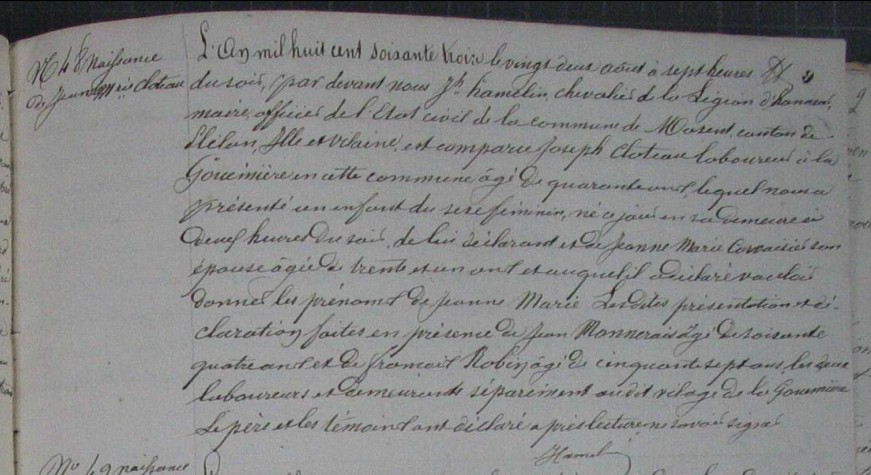 N° 48 Naissance
de Jeanne Mie Cloteau
L'An mil huit cent soixante trois le vingt deux août à sept heures
du soir, par devant nous Jh hamelin, chevalier de la Légion d'honneur,
maire, officier de l'Etat civil de la commune de Maxent, canton de
Plélan, Ille et vilaine, est comparu Joseph Cloteau laboureur à la
Gouesnière en cette commune âgé de quarante ans, lequel nous a
présenté un enfant du sexe féminin, né ce jour en sa demeure à
deux heures du soir, de lui déclarant et de Jeanne Marie son
épouse âgée de trente et un ans et auquel il a déclaré vouloir
donner les prénoms de Jeanne Marie Les dites présentation et dé-
claration faites en présence de Jean Monnerais âgé de soixante
quatre ans et de francois Robin âgé de cinquante sept ans, les deux
laboureurs et demeurants séparément au dit village de la Gouesnière
Le père et les témoins ont déclaré après lecture ne savoir signer
Hamel
N° 49 naissance